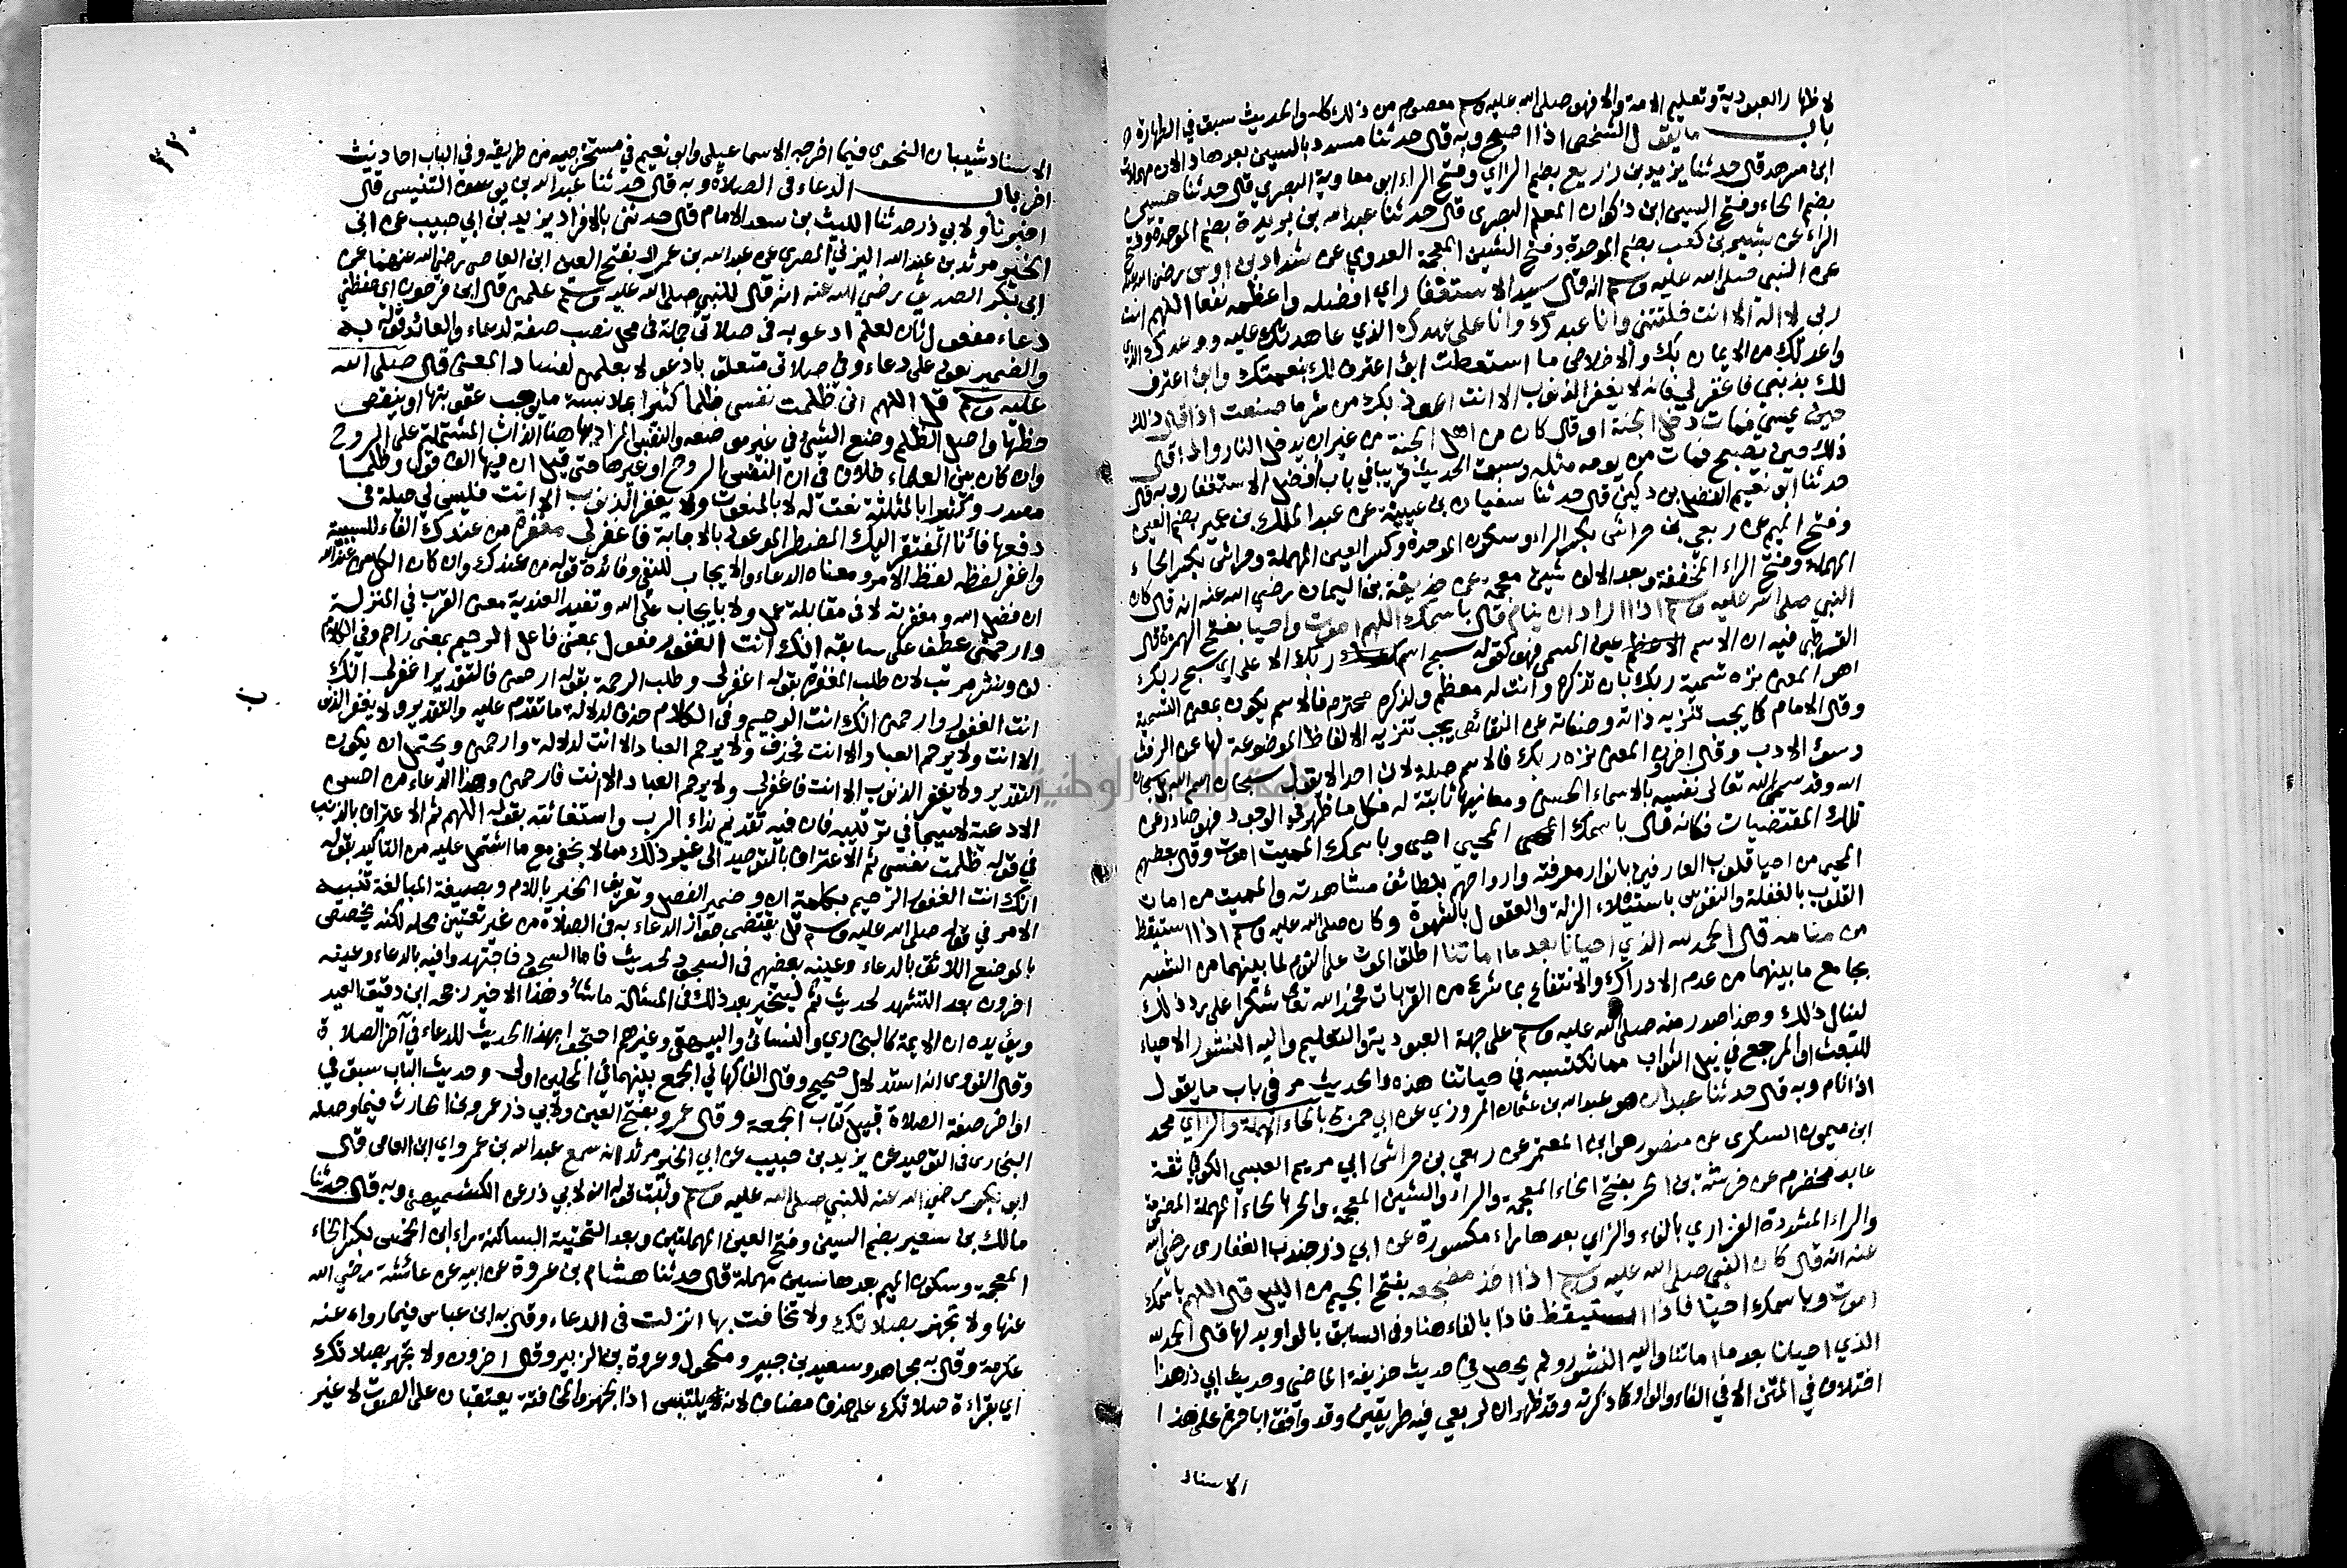 لاظهار العبودية وتعليم الامة والا فهو صلى الله عليه وسلم معصوم من ذلك كله والحديث سبق في الطهارة
باب ما يقول الشخص اذا اصبح وبه قال حدثنا مسدد بالسين بعدها دالان مهملات
ابن مسرهد قال حدثنا يزيد بن زريع بضم الزاي وفتح الراء ابو معاوية البصري قال حدثنا حسين
بضم الحاء وفتح السين ابن ذكوان المعلم البصري قال حدثنا عبد الله بن بريدة بضم الموحدة وفتح
الراء عن بشير بن كعب بضم الموحدة وفتح الشين المعجمة العدوي عن شداد بن اوس رضي الله عنه
عن النبي صلى الله عليه وسلم انه قال سيد الاستغفار اي افضله واعظمه نفعا اللهم انت
ربي لا اله الا انت خلقتني وانا عبدك وانا على عهدك الذي عاهدتك عليه ووعدك الذي
واعدتك من الايمان بك والاخلاص ما استطعت ابوء اعترف لك بنعمتك وابوء اعترف
لك بذنبي فاغفر لي فانه لا يغفر الذنوب الا انت اعوذ بك من شر ما صنعت اذا قال ذلك
حين يمسي فمات دخل الجنة او قال كان من اهل الجنة من غير ان يدخل النار واذا قال
ذلك حين يصبح فمات من يومه مثله وسبق الحديث قريبا في باب افضل الاستغفار وبه قال
حدثنا ابو نعيم الفضل بن دكين قال حدثنا سفيان بن عيينة عن عبد الملك بن عمير بضم العين
وفتح الميم عن ربعي بن حراش بكسر الراء وسكون الموحدة وكسر العين المهملة وحراش بكسر الحاء
المهملة وفتح الراء المخففة وبعد الالف شين معجمة عن حذيفة بن اليمان رضي الله عنه انه قال كان
النبي صلى الله عليه وسلم اذا اراد ان ينام قال باسمك اللهم اموت واحيا بفتح الهمزة قال
القرطبي فيه ان الاسم عين المسمى فهو كقوله سبح اسم ربك الاعلى اي سبح ربك
اهو المعنى نزه تسمية ربك بان تذكره وانت له معظم ولذكره محترم فالاسم يكون بمعنى التسمية
وقال الامام كما يجب تنزيه ذاته وصفاته عن النقائص يجب تنزيه الالفاظ الموضوعة لها عن الرفث
وسوء الادب وقال اخرون المعنى نزه ربك فالاسم صلة لان احدا لا يقول سبحان اسم الله بل سبحان
الله وقد سمى الله تعالى نفسه بالاسماء الحسنى ومعانيها ثابتة له فكل ما ظهر في الوجود فهو صادر عن
تلك المقتضيات فكانه قال باسمك المحيي احيى وباسمك المميت اموت وقال بعضهم
المحيي من احيا قلوب العارفين بانوار معرفته وارواحهم بلطائف مشاهدته والمميت من امات
القلوب بالغفلة والنفوس باستيلاء الزلة والعقول بالشهوة وكان صلى الله عليه وسلم اذا استيقظ
من منامه قال الحمد لله الذي احيانا بعد ما اماتنا اطلق الموت على النوم لما بينهما من الشبه
بجامع ما بينهما من عدم الادراك والانتفاع بما شرع من القربات فحمد الله تعالى شكرا على رد ذلك
لينال ذلك وهذا صدر منه صلى الله عليه وسلم على جهة العبودية والتعليم واليه النشور الاحياء
للبعث او المرجع في نيل الثواب مما نكتسبه في حياتنا هذه والحديث مر في باب ما يقول
اذا نام وبه قال حدثنا عبدان هو عبد الله بن عثمان المروزي عن ابي حمزة بالحاء المهملة والزاي محمد
ابن ميمون السكري عن منصور هو ابن المعتمر عن ربعي بن حراش ابي مريم العبسي الكوفي ثقة
عابد مخضرم عن خرشة بن الحر بفتح الخاء المعجمة والراء والشين المعجمة والحر بالحاء المهملة المضمومة
والراء المشددة الفزاري بالفاء والزاي بعدها راء مكسورة عن ابي ذر جندب الغفاري رضي الله
عنه انه قال كان النبي صلى الله عليه وسلم اذا اخذ مضجعه بفتح الجيم من الليل قال اللهم باسمك
اموت وباسمك احيا فاذا استيقظ فاذا بالفاء هنا وفي السابق بالواو بدلها قال الحمد لله
الذي احيانا بعد ما اماتنا واليه النشور ولم يحصل في حديث حذيفة الماضي وحديث ابي ذر هذا
اختلاف في المتن الا في الفاء والواو كما ذكرته وقد ظهر ان لربعي فيه طريقين وقد وافق ابا حمزة على هذا
الاسناد
٣٣٠
الاسناد شيبان النحوي فيما اخرجه الاسماعيلي وابو نعيم في مستخرجيهما من طريقه وفي الباب احاديث
اخر باب الدعاء في الصلاة وبه قال حدثنا عبد الله بن يوسف التنيسي قال
اخبرنا ولابي ذر حدثنا الليث بن سعد الامام قال حدثني بالافراد يزيد بن ابي حبيب عن ابي
الخير مرثد بن عبد الله اليزني المصري عن عبد الله بن عمرو بفتح العين ابن العاص رضي الله عنهما عن
ابي بكر الصديق رضي الله عنه انه قال للنبي صلى الله عليه وسلم علمني قال ابن فرحون اي حفظني
دعاء مفعول ثان لعلم ادعو به في صلاتي جملة في محل نصب صفة لدعاء والعائد قوله به
والضمير يعود على دعاء وفي صلاتي متعلق بادعو لا بعلمني لفساد المعنى قال صلى الله
عليه وسلم قل اللهم اني ظلمت نفسي ظلما كثيرا بملابسة ما يوجب عقوبتها او ينقص
حظها واصل الظلم وضع الشيء في غير موضعه والنفس المراد بها هنا الذات المشتملة على الروح
وان كان بين العلماء خلاف في ان النفس الروح او غيرها حتى قيل ان فيها الف قول وظلما
مصدر وكثيرا بالمثلثة نعت له لا بالمنعوت ولا يغفر الذنوب الا انت فليس لي حيلة في
دفعها فأنا المفتقر اليك المضطر الموعود بالاجابة فاغفر لي مغفرة من عندك الفاء للسببية
واغفر لفظه لفظ الامر ومعناه الدعاء والايجاب للنفي وفائدة قوله من عندك وان كان الكل من عند الله
ان فضل الله ومغفرته لا في مقابلة عمل ولا بايجاب على الله وتفيد العندية معنى القرب في المنزلة
وارحمني عطف على سابقه انك انت الغفور مفعول بمعنى فاعل الرحيم بمعنى راحم وفي الكلام
لف ونشر مرتب لان طلب المغفرة بقوله اغفر لي وطلب الرحمة بقوله ارحمني فالتقدير اغفر لي انك
انت الغفور وارحمني انك انت الرحيم وفي الكلام حذف لدلالة ما تقدم عليه والتقدير ولا يغفر الذنوب
الا انت ولا يرحم العباد الا انت فحذف ولا يرحم العباد الا انت لدلالة وارحمني ويحتمل ان يكون
التقدير ولا يغفر الذنوب الا انت فاغفر لي ولا يرحم العباد الا انت فارحمني وهذا الدعاء من احسن
الادعية لاسيما في ترتيبه فان فيه تقديم نداء الرب واستغاثته بقوله اللهم ثم الاعتراف بالذنب
في قوله ظلمت نفسي ثم الاعتراف بالتوحيد الى غير ذلك مما لا يخفى مع ما اشتمل عليه من التاكيد بقوله
انك انت الغفور الرحيم بكلمة ان وضمير الفصل وتعريف الخبر باللام وبصيغة المبالغة تنبيه
الامر في قوله صلى الله عليه وسلم قل يقتضي جواز الدعاء به في الصلاة من غير تعيين محله لكنه يخصص
بالموضع اللائق بالدعاء وعينه بعضهم في السجود لحديث فاما السجود فاجتهدوا فيه بالدعاء وعينه
اخرون بعد التشهد لحديث ثم ليتخير بعد ذلك في المسئلة ما شاء وهذا الاخير رجحه ابن دقيق العيد
ويؤيده ان الايمة كالبخاري والنسائي والبيهقي وغيرهم احتجوا بهذا الحديث للدعاء في آخر الصلاة
وقال النووي انه استدلال صحيح وقال الفاكهاني الجمع بينهما في المحلين اولى وحديث الباب سبق في
اواخر صفة الصلاة قبيل كتاب الجمعة وقال عمرو بفتح العين ولابي ذر عمرو بن الحارث فيما وصله
البخاري في التوحيد عن يزيد بن حبيب عن ابي الخير مرثد انه سمع عبد الله بن عمرو اي ابن العاص قال
ابو بكر رضي الله عنه للنبي صلى الله عليه وسلم وثبت قوله انه لابي ذر عن الكشميهني وبه قال حدثنا
مالك بن سعير بضم السين وفتح العين المهملتين وبعد التحتية الساكنة راء ابن الخمس بكسر الخاء
المعجمة وسكون الميم بعدها سين مهملة قال حدثنا هشام بن عروة عن ابيه عن عائشة رضي الله
عنها ولا تجهر بصلاتك ولا تخافت بها انزلت في الدعاء وقال به ابن عباس فيما رواه عنه
عكرمة وقال به مجاهد وسعيد بن جبير ومكحول وعروة بن الزبير وقال اخرون ولا تجهر بصلاتك
اي بقراءة صلاتك على حذف مضاف لانه لا يلتبس اذ الجهر والمخافتة يعتقبان على الصوت لا غير